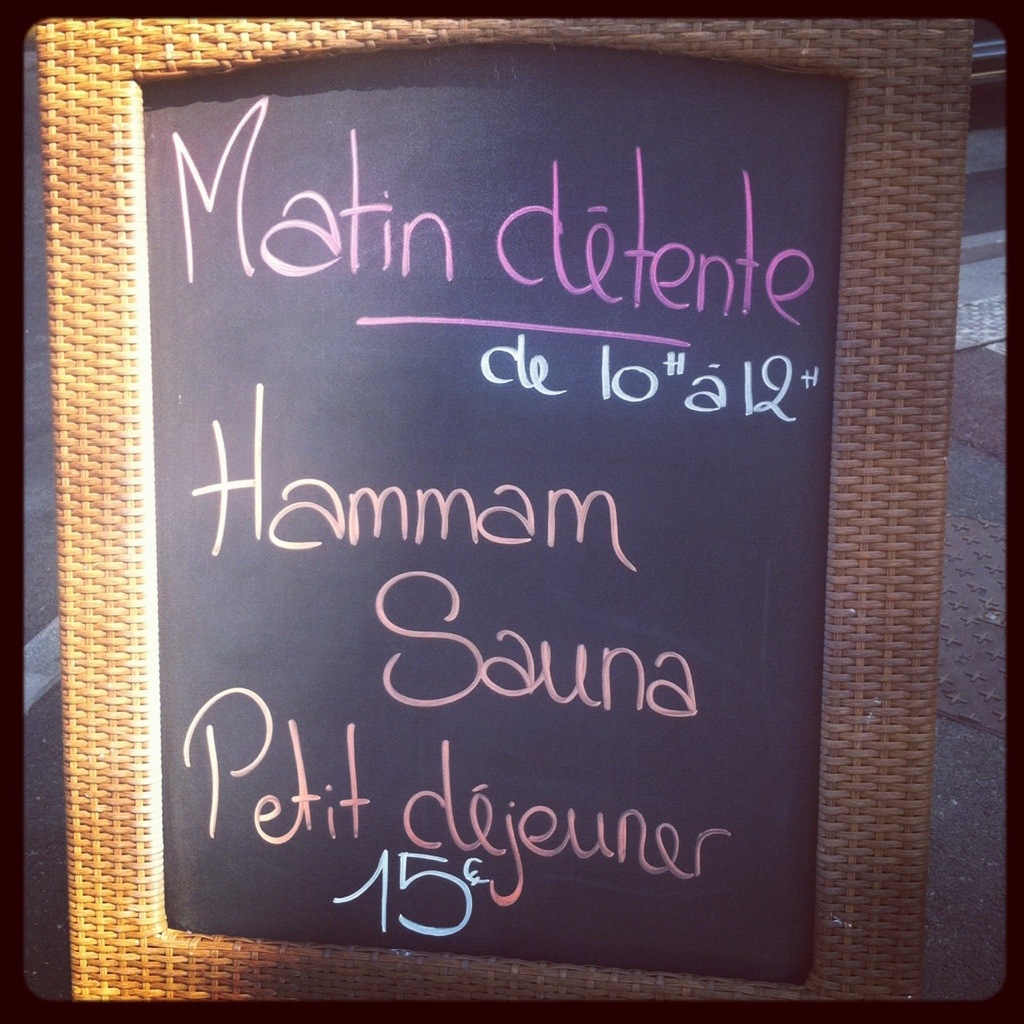 Matin détente
de 10H à 12H
Hammam
Sauna
Petit déjeuner
15€